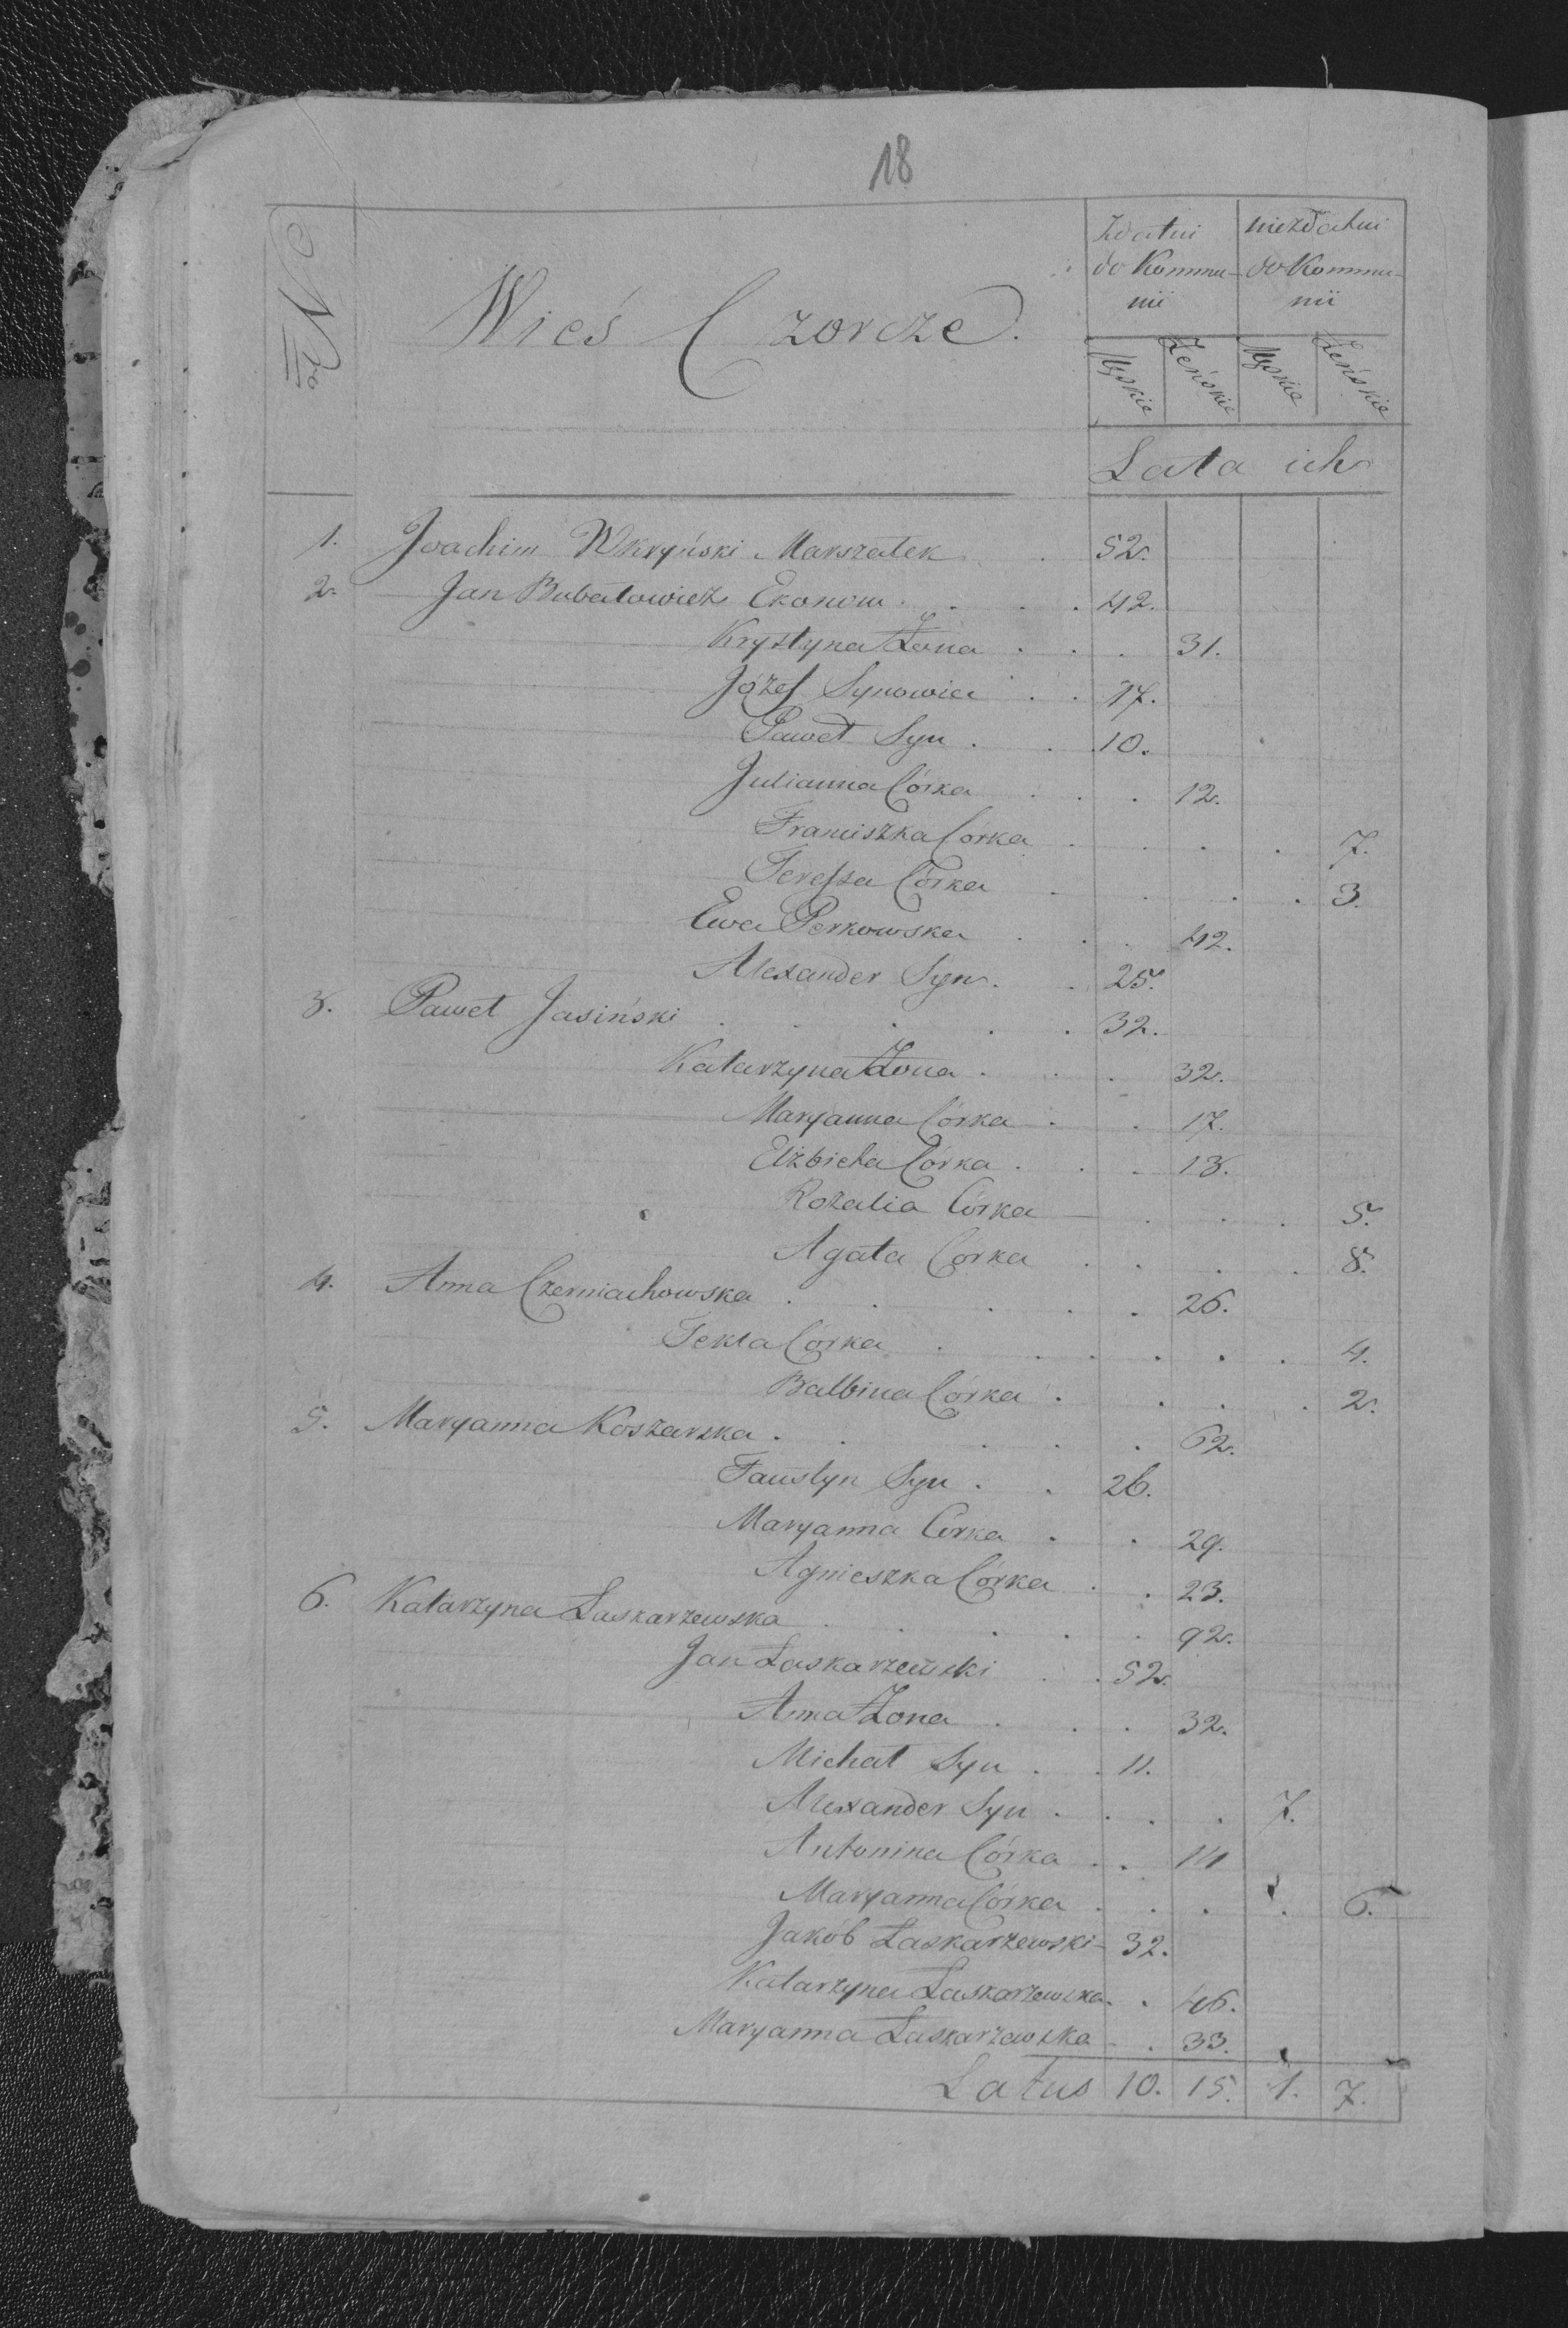 18
Nro
Wieś Czorcze.
Zdatni do Kommu-nii
niezdatni do Kommu-nii
Męskie Żeńskie Męskie Żeńskie
Lata ich
1. Joachim Wkryński Marszałek . 52.
2. Jan Bubałowicz Ekonom . . . . 42.
Krystyna Żona . . . 31.
Józef Synowiec . . 17.
Paweł Syn . . 10.
Julianna Córka . . . 12.
Franciszka Córka . . . . 7.
Teressa Córka . . . . 3.
Ewa Perkowska . . . 42.
Alexander Syn . . 25.
3. Paweł Jasiński . . . . . 32.
Katarzyna Żona . . . 32.
Maryanna Córka . . 17.
Elżbieta Córka . . . 13.
Rozalia Córka . . . 5.
Agata Córka . . . . 8.
4. Anna Czerniachowska . . . . . 26.
Tekla Córka . . . . . . 4.
Balbina Córka . . . . . 2.
5. Maryanna Koszarska . . . . . 62.
Faustyn Syn . . 26.
Maryanna Córka . . 29.
Agnieszka Córka . . 23.
6. Katarzyna Łaskarzewska . . . . . 92.
Jan Łaskarzewski . . 52.
Anna Żona . . . 32.
Michał Syn . . 11.
Alexander Syn . . . . 7.
Antonina Córka . . 14
Maryanna Córka . . . . 6.
Jakób Łaskarzewski - 32.
Katarzyna Łaskarzewska . . 46.
Maryanna Łaskarzewska - . 33.
Latus 10. 15. 1. 7.